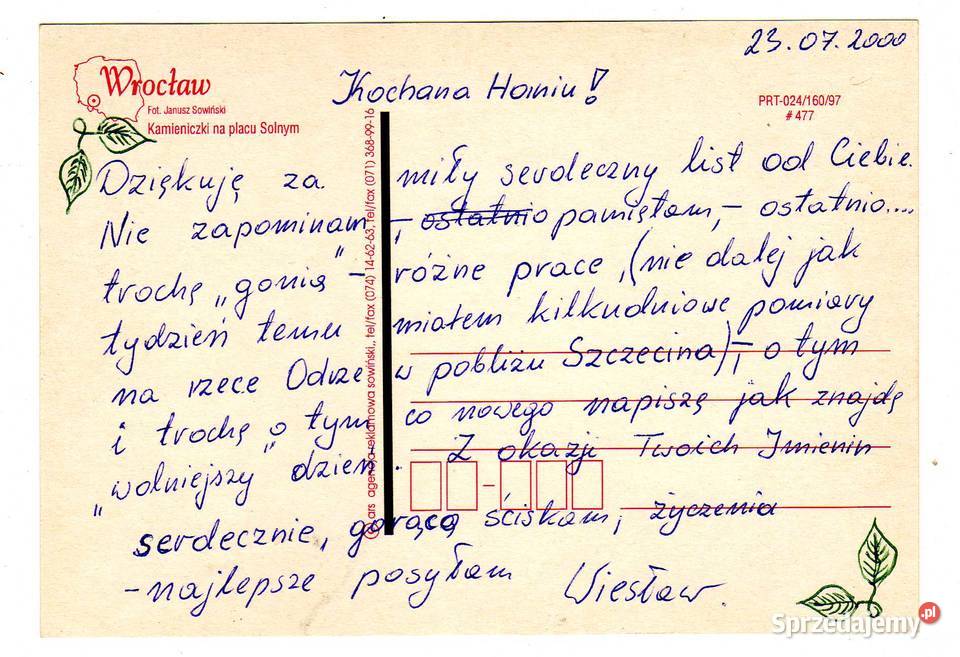 23.07.2000
Wrocław
Fot. Janusz Sowiński
Kamieniczki na placu Solnym
PRT-024/160/97
# 477
Kochana Haniu!
Dziękuję za miły serdeczny list od Ciebie.
Nie zapominam, - ostatnio pamiętam, - ostatnio....
trochę „gonią" - różne prace, (nie dalej jak
tydzień temu miałem kilkudniowe pomiary
na rzece Odrze w pobliżu Szczecina), - o tym
i trochę o tym co nowego napiszę jak znajdę
„wolniejszy" dzień. Z okazji Twoich Imienin
serdecznie, gorąco ściskam, życzenia
- najlepsze posyłam Wiesław.
ars agencja reklamowa sowiński,, tel/fax (074) 14-62-63, tel/fax (071) 368-99-16
Sprzedajemy.pl